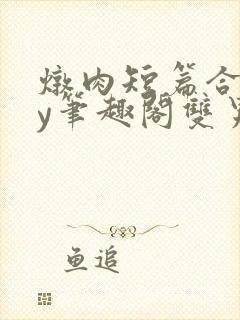 燉肉短篇合
y筆趣閣雙
鱼追